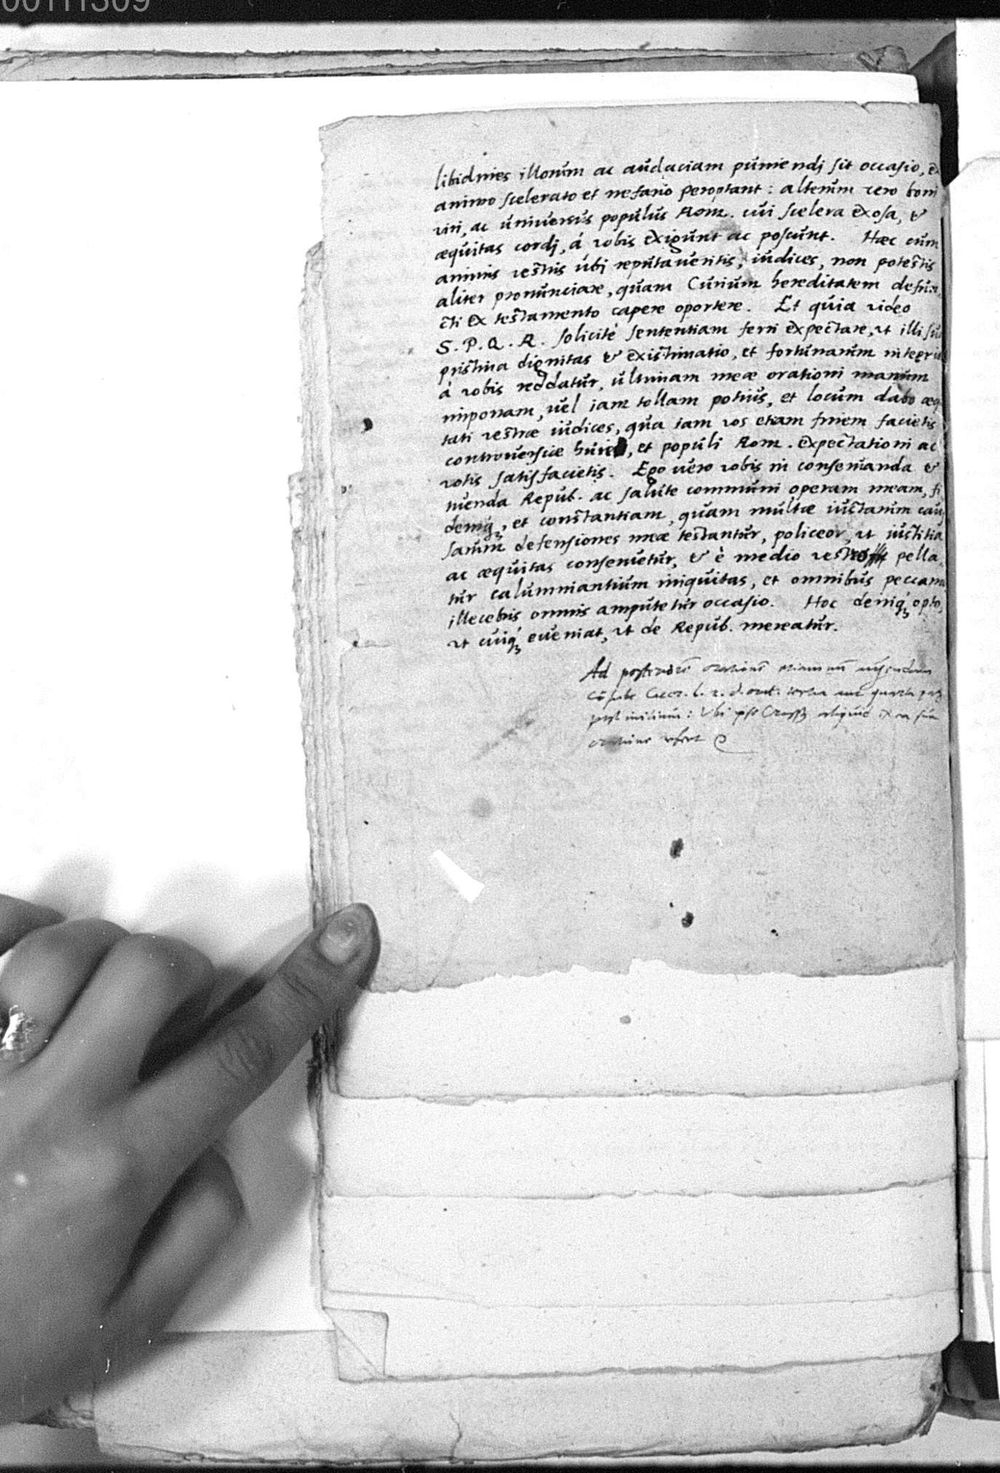 00111309
libidines illorum ac audaciam puniendj sit occasio, ex
animo scelerato et nefario peroptant: alterum vero boni
viri, ac universus populus Rom. cui scelera exosa, &
æquitas cordj, á vobis exigunt ac poscunt. Hæc cum
animis vestris ubi reputaveritis, iudices, non potestis
aliter pronunciare, quam Curium hereditatem defun
cti ex testamento capere oportere. Et quia video
S. P. Q. R. solicité sententiam ferri expectare, ut illi sua
pristina dignitas & existimatio, et fortunarum
á vobis reddatur, ultimam meæ orationi manum
imponam, vel iam tollam potius, et locum dabo æqui
tati vestræ iudices, qua iam vos etiam finem facietis
controversiæ, et populi Rom. expectationi ac
votis satisfacietis. Ego vero vobis in conservanda &
tuenda Repub. ac salute communi operam meam, fi
demq;, et constantiam, quam multæ iustarum cau
sarum defensiones meæ testantur, policeor, ut iustitia
ac æquitas conservetur, & è medio pella
tur calumniantium iniquitas, et omnibus peccann
illecebris omnis amputetur occasio. Hoc deniq; opto,
ut cuiq; eveniat, ut de Repub. mereatur.
Ad
Cicer. l. 2. d. orat.
post initium: Ubi
refert